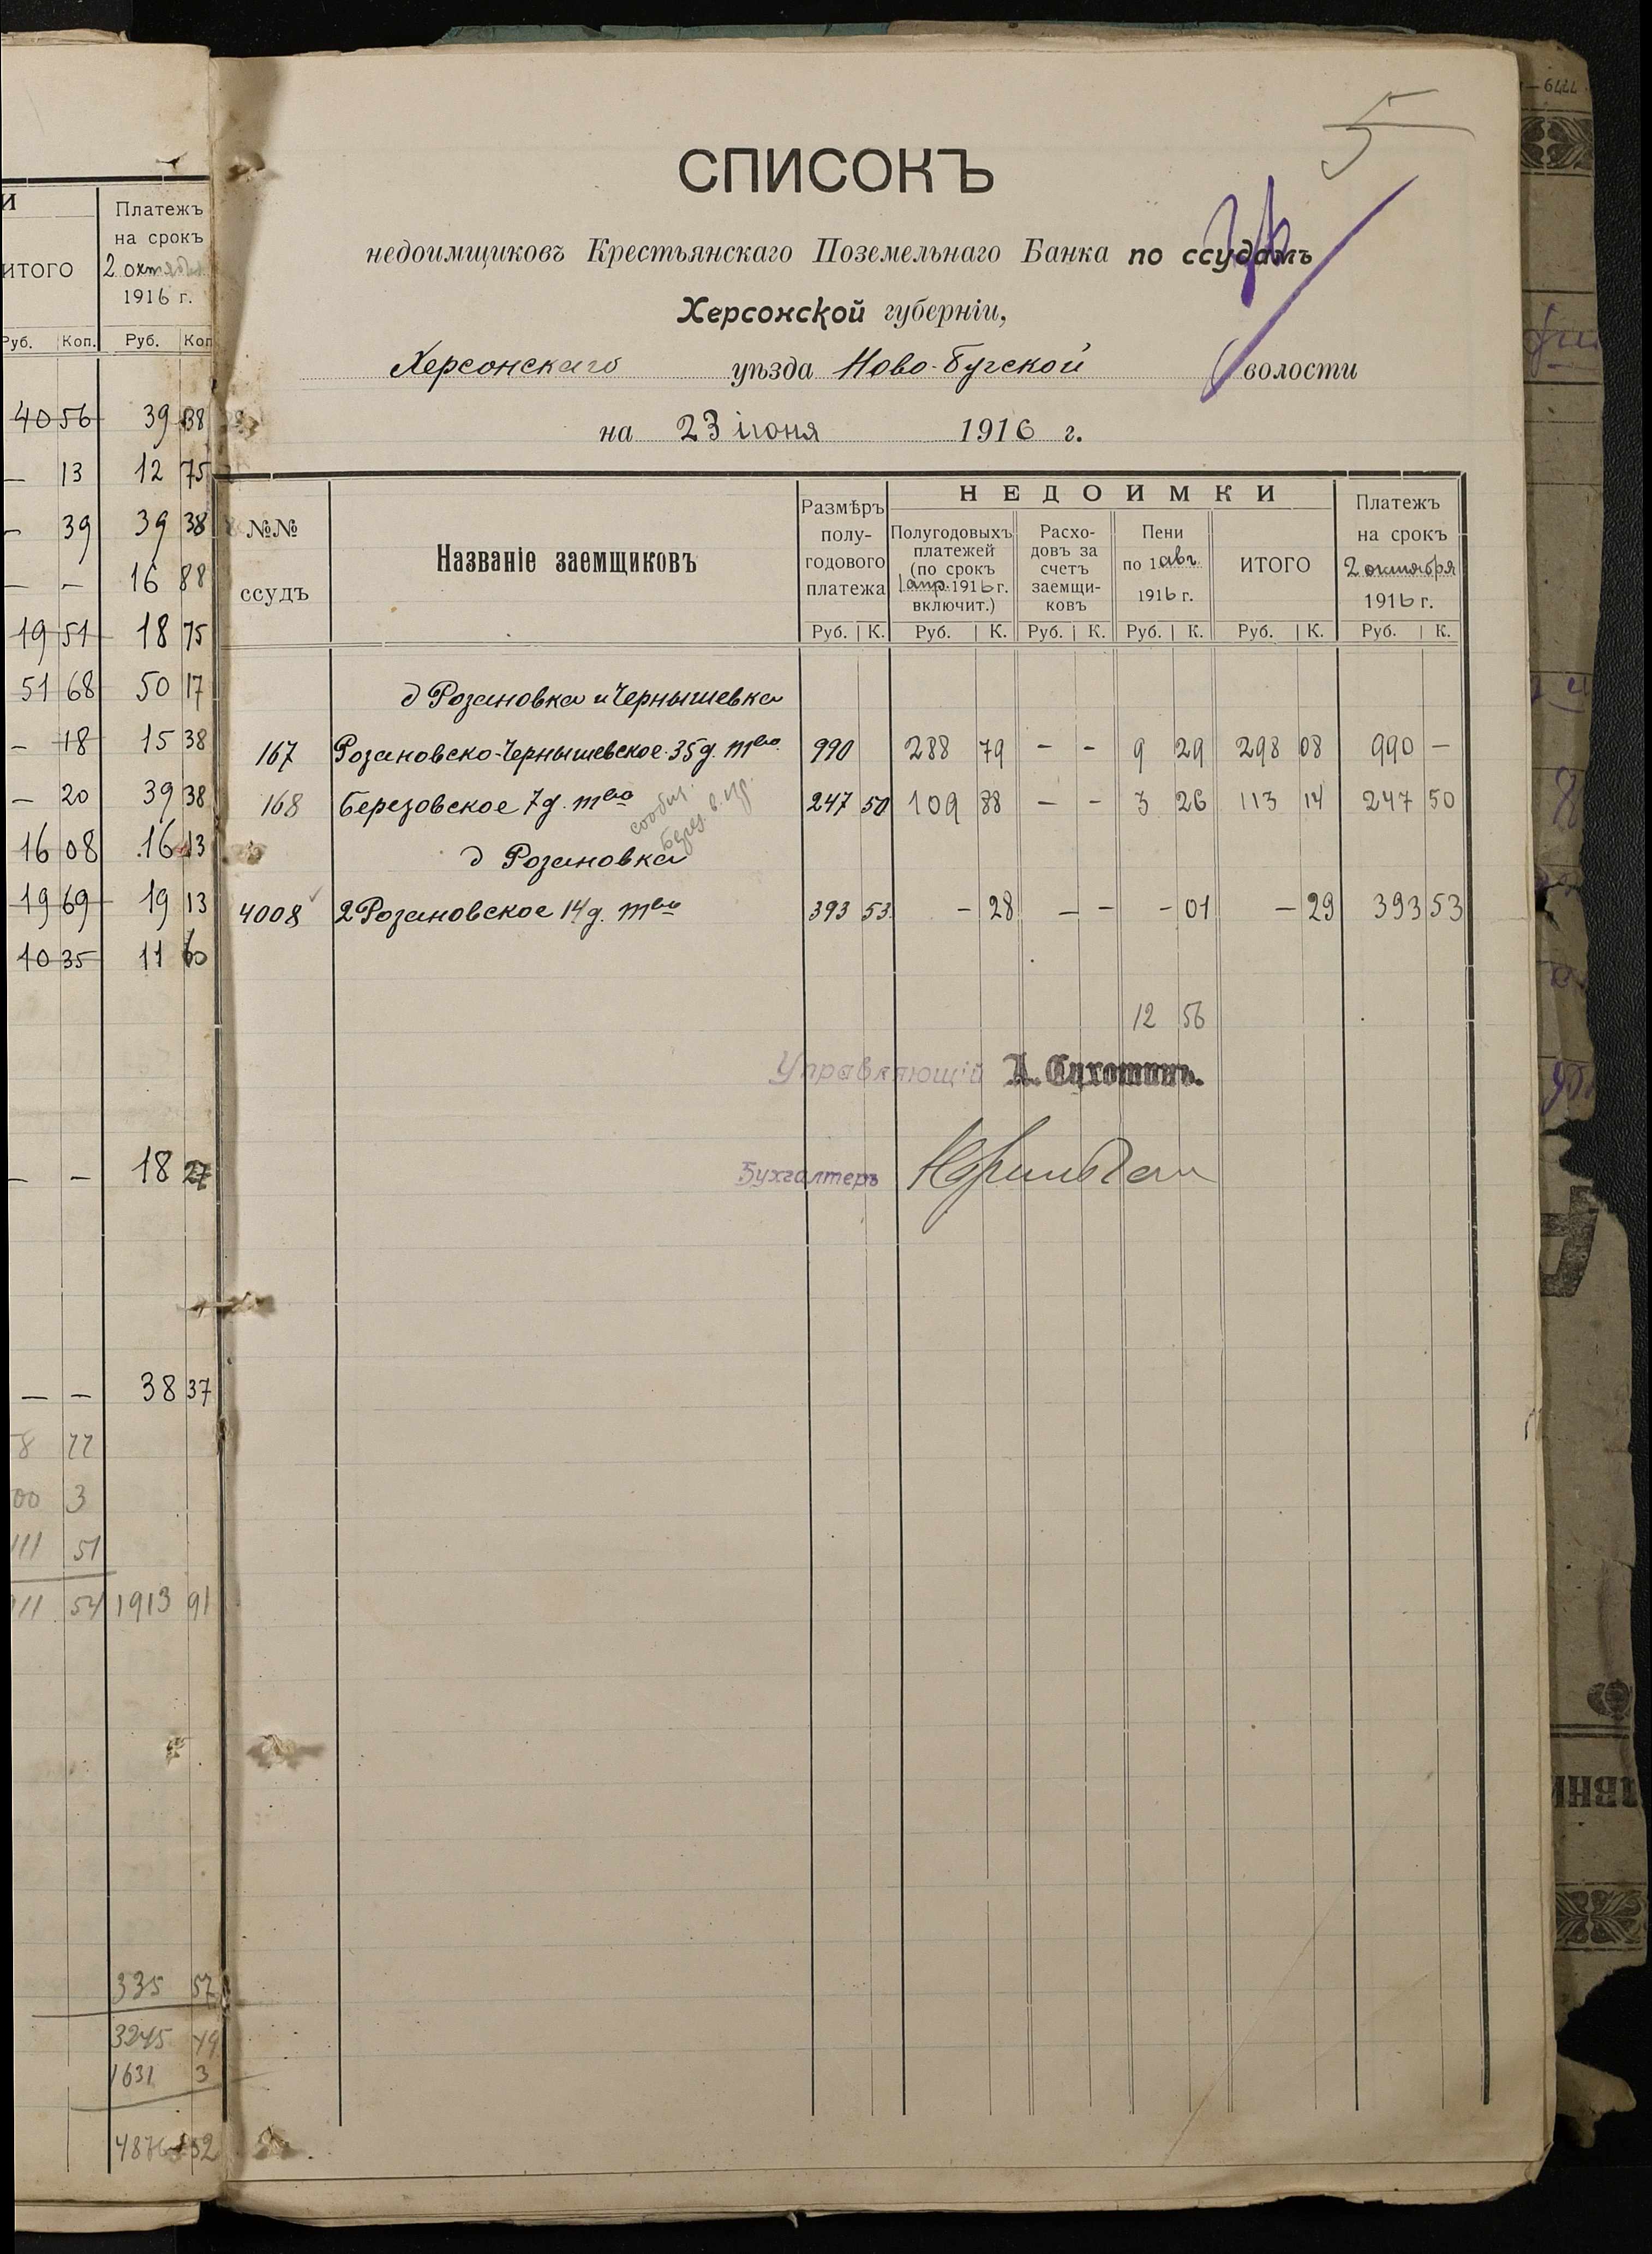 И
Платежъ
на срокъ
ИТОГО
2 октября
1916 г.
Руб. Коп. Руб. Коп
40 56 39 38
— 13 12 75
— 39 39 38
— — 16 88
19 51 18 75
51 68 50 17
— 18 15 38
— 20 39 38
16 08 16 13
19 69 19 13
10 35 11 60
— — 18 27
— — 38 37
8 77
00 3
111 51
11 54 1913 91
335 57
3245 49
1631 3
4876 52
5
СПИСОКЪ
недоимщиковъ Крестьянскаго Поземельнаго Банка по ссудамъ
Херсонской губерніи,
Херсонскаго уѣзда Ново-Бугской волости
на 23 іюня 1916 г.
№№
ссудъ
Названіе заемщиковъ
Размѣръ
полу-
годового
платежа
НЕДОИМКИ
Полугодовыхъ
платежей
(по срокъ
1 апр. 1916 г.
включит.)
Расхо-
довъ за
счетъ
заемщи-
ковъ
Пени
по 1 авг.
1916 г.
ИТОГО
Платежъ
на срокъ
2 октября
1916 г.
Руб. К. Руб. К. Руб. К. Руб. К. Руб. К. Руб. К.
д Розановка и Чернышевка
167 Розановско-Чернышевское 35 д. тво 990 288 79 - - 9 29 298 08 990 —
168 Березовское 7 д. тво 247 50 109 88 — - 3 26 113 14 247 50
сообщ.
д Розановка
4008 2 Розановское 14 д. тво 393 53 - 28 — - - 01 - 29 393 53
12 56
Управляющій А. Сухотинъ.
Бухгалтеръ